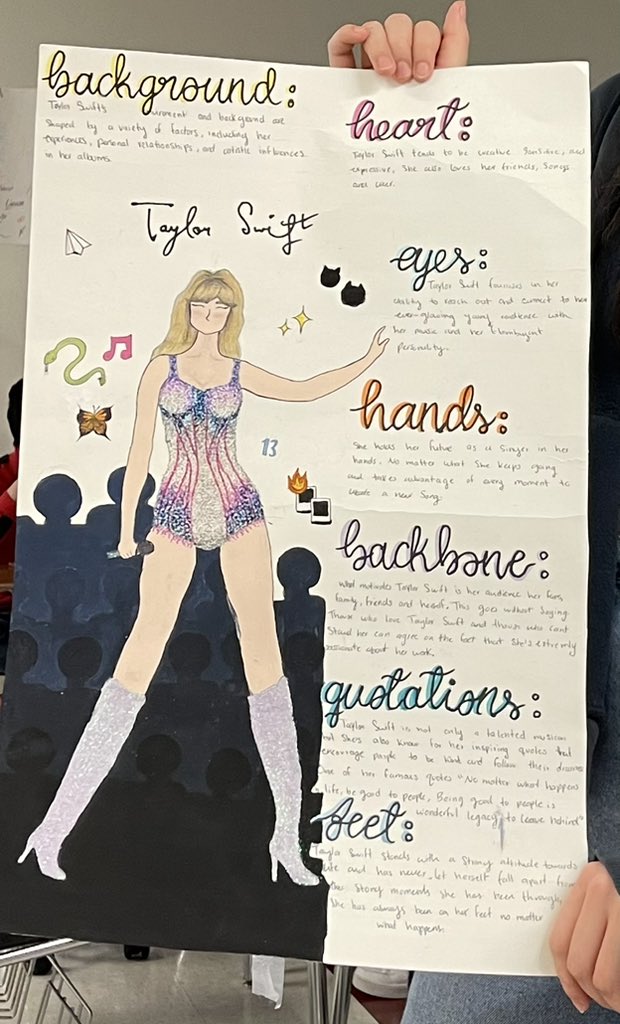 background:
Taylor Swift's and background are
shaped by a variety of factors, including her
experiences, personal relationships, and artistic influences
in her albums.
Taylor Swift
13
heart:
Taylor Swift tends to be creative, sensitive, and
expressive, She also loves her friends, Songs
and
eyes:
Taylor Swift in her
ability to reach out and connect to her
ever-glowing young audience with
her music and her
personality.
hands:
She holds her future as a Singer in her
hands. No matter what She keeps going
and takes advantage of every moment to
create a new Song.
backbone:
What motivates Taylor Swift is her audience her fans,
family, friends and herself. This goes without Saying
Those who love Taylor Swift and those who cant
Stand her can agree on the fact that She's extremly
passionate about her work.
quotations:
Taylor Swift is not only a talented musician
but She's also know for her inspiring quotes that
encourage people to be kind and follow their dreams
One of her famous quotes "No matter what happens
life, be good to people, Being good to people is
wonderful legacy to leave behind"
feet:
Taylor Swift stands with a Strong attitude towards
and has never let herself fall apart from
moments she has been through,
She has always been on her feet no matter
what happens.